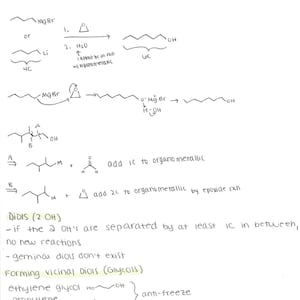 MgBr
1.
or
OH
Li
2. H2O
4C
6C
MgBr
O MgBr
OH
H-OH
A
B
OH
A
M + add 1C to organometallic
B
M + add 2C to organometallic by epoxide rxn
Diols (2 OH)
- if the 2 OH's are separated by at least 1C in between,
no new reactions
- geminal diols don't exist
Forming vicinal Diols (Glycols)
ethylene glycol HO OH
anti-freeze